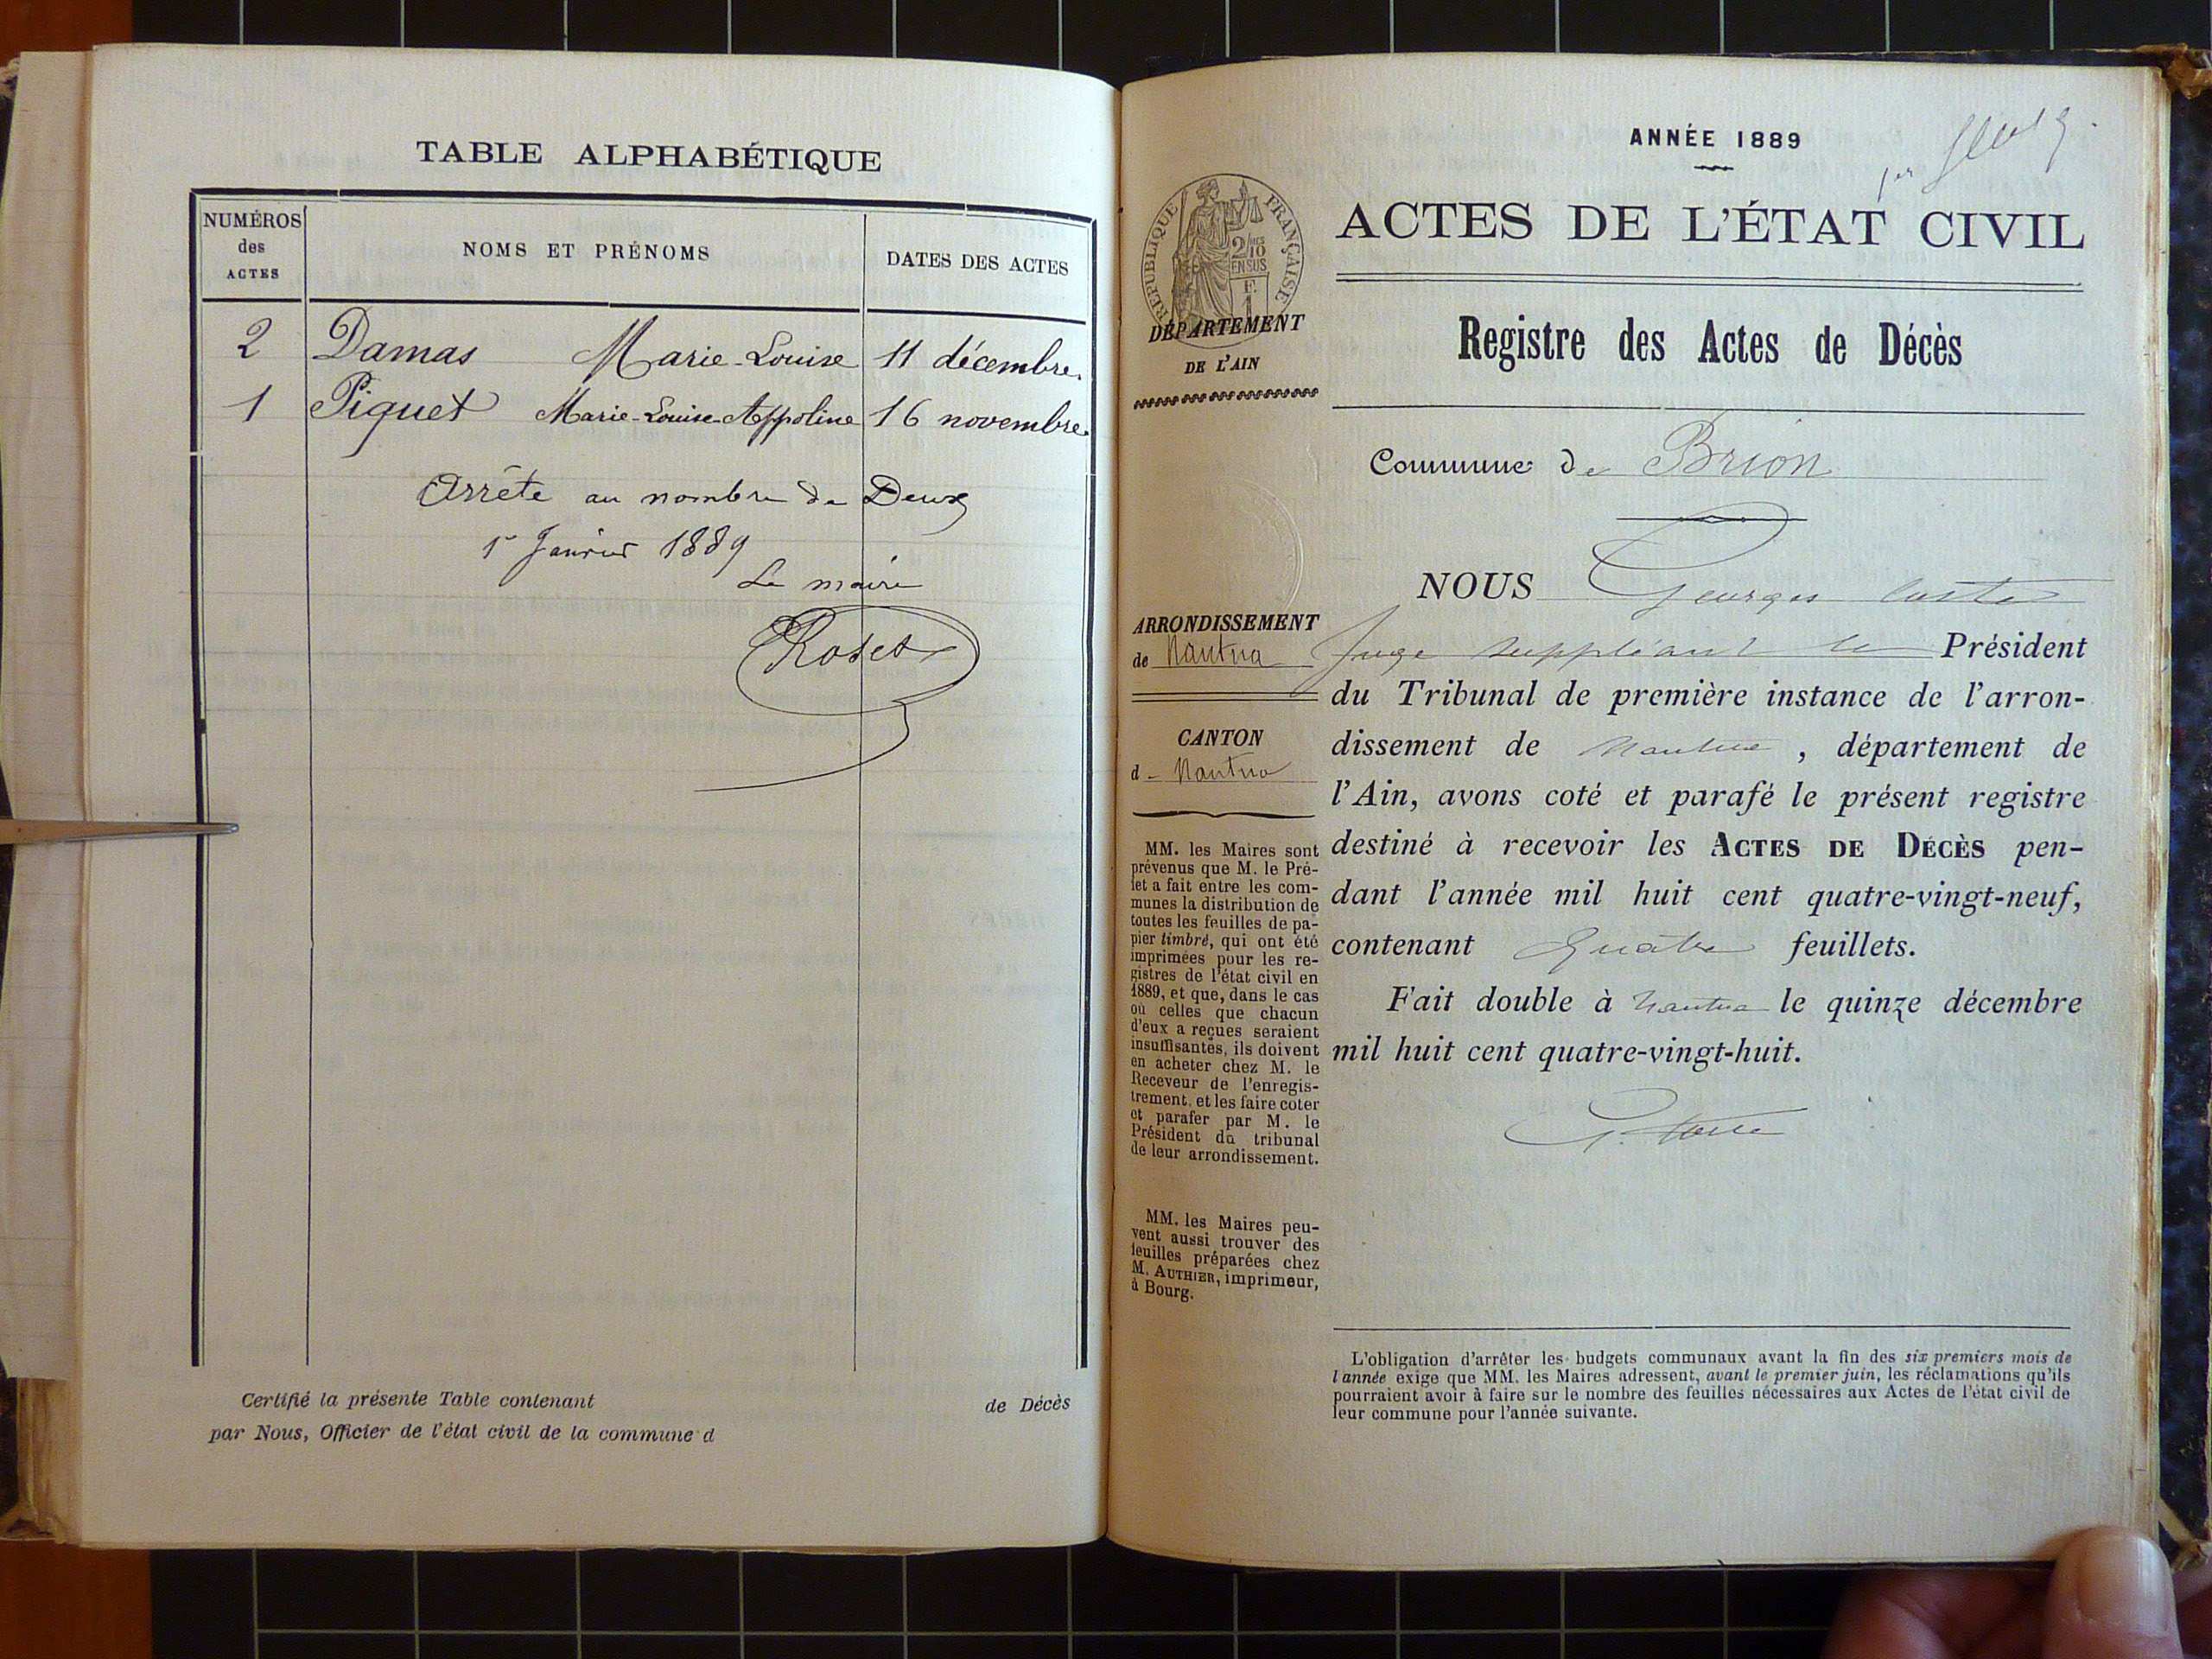 TABLE ALPHABÉTIQUE
NUMÉROS
des
ACTES
NOMS ET PRÉNOMS
DATES DES ACTES
2 Damas Marie-Louise 11 décembre.
1 Piguet Marie-Louise-Appoline 16 novembre.
Arrête au nombre de Deux
1r Janvier 1889
Le maire
Roset
Certifié la présente Table contenant de Décès
par Nous, Officier de l'état civil de la commune d
ANNÉE 1889
1er
ACTES DE L'ÉTAT CIVIL
RÉPUBLIQUE FRANÇAISE
2/10
EN SUS
F.
1
DÉPARTEMENT
DE L'AIN
Registre des Actes de Décès
Commune de Brion
ARRONDISSEMENT
de Nantua
CANTON
d- Nantua
MM. les Maires sont
prévenus que M. le Pré-
fet a fait entre les com-
munes la distribution de
toutes les feuilles de pa-
pier timbré, qui ont été
imprimées pour les re-
gistres de l'état civil en
1889, et que, dans le cas
où celles que chacun
d'eux a reçues seraient
insuffisantes, ils doivent
en acheter chez M. le
Receveur de l'enregis-
trement, et les faire coter
et parafer par M. le
Président du tribunal
de leur arrondissement.
MM. les Maires peu-
vent aussi trouver des
feuilles préparées chez
M. AUTHIER, imprimeur,
à Bourg.
NOUS Georges
Juge suppléant le Président
du Tribunal de première instance de l'arron-
dissement de Nantua, département de
l'Ain, avons coté et parafé le présent registre
destiné à recevoir les ACTES DE DÉCÈS pen-
dant l'année mil huit cent quatre-vingt-neuf,
contenant Quatre feuillets.
Fait double à Nantua le quinze décembre
mil huit cent quatre-vingt-huit.
L'obligation d'arrêter les budgets communaux avant la fin des six premiers mois de
l'année exige que MM. les Maires adressent, avant le premier juin, les réclamations qu'ils
pourraient avoir à faire sur le nombre des feuilles nécessaires aux Actes de l'état civil de
leur commune pour l'année suivante.